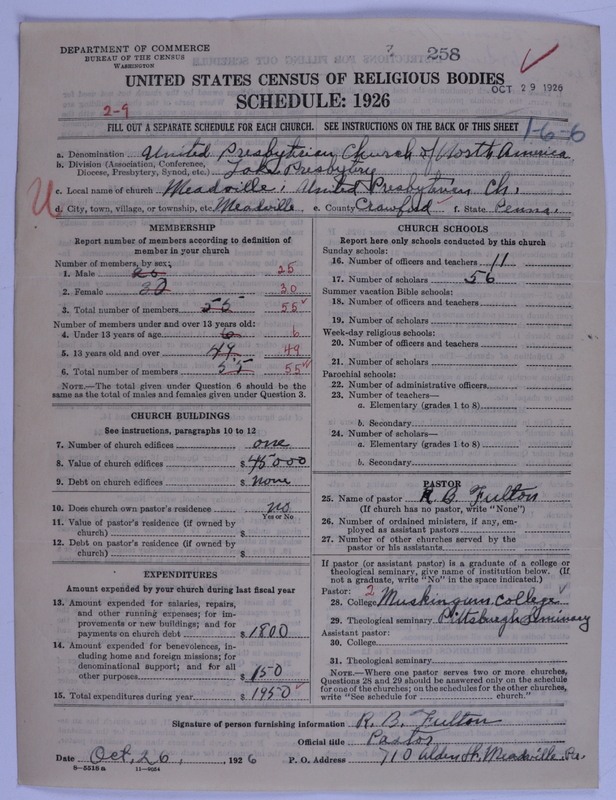 DEPARTMENT OF COMMERCE
BUREAU OF THE CENSUS
WASHINGTON
258
UNITED STATES CENSUS OF RELIGIOUS BODIES
OCT 29 1926
SCHEDULE: 1926
2-9
FILL OUT A SEPARATE SCHEDULE FOR EACH CHURCH. SEE INSTRUCTIONS ON THE BACK OF THIS SHEET
1-6-6
a. Denomination United Presbyterian Church of North America
b. Division (Association, Conference, Diocese, Presbytery, Synod, etc.) Lake Presbytery
c. Local name of church Meadville, United Presbyterian Ch.
U
d. City, town, village, or township, etc. Meadville e. County Crawford f. State Penna.
MEMBERSHIP
Report number of members according to definition of
member in your church
Number of members, by sex:
1. Male 25 25
2. Female 30 30
3. Total number of members 55 55
Number of members under and over 13 years old:
4. Under 13 years of age 6 6
5. 13 years old and over 49 49
6. Total number of members 55 55
NOTE.—The total given under Question 6 should be the
same as the total of males and females given under Question 3.
CHURCH BUILDINGS
See instructions, paragraphs 10 to 12
7. Number of church edifices one
8. Value of church edifices $45000
9. Debt on church edifices $ none
10. Does church own pastor's residence no
Yes or No
11. Value of pastor's residence (if owned by
church) $
12. Debt on pastor's residence (if owned by
church) $
EXPENDITURES
Amount expended by your church during last fiscal year
13. Amount expended for salaries, repairs,
and other running expenses; for im-
provements or new buildings; and for
payments on church debt $1800
14. Amount expended for benevolences, in-
cluding home and foreign missions; for
denominational support; and for all
other purposes $150
15. Total expenditures during year $1950
CHURCH SCHOOLS
Report here only schools conducted by this church
Sunday schools:
16. Number of officers and teachers 11
17. Number of scholars 56
Summer vacation Bible schools:
18. Number of officers and teachers
19. Number of scholars
Week-day religious schools:
20. Number of officers and teachers
21. Number of scholars
Parochial schools:
22. Number of administrative officers
23. Number of teachers—
a. Elementary (grades 1 to 8)
b. Secondary
24. Number of scholars—
a. Elementary (grades 1 to 8)
b. Secondary
PASTOR
25. Name of pastor R B Fulton
(If church has no pastor, write "None")
26. Number of ordained ministers, if any, em-
ployed as assistant pastors
27. Number of other churches served by the
pastor or his assistants
If pastor (or assistant pastor) is a graduate of a college or
theological seminary, give name of institution below. (If
not a graduate, write "No" in the space indicated.)
Pastor: 2
28. College Muskingum College
29. Theological seminary Pittsburgh Seminary
Assistant pastor:
30. College
31. Theological seminary
NOTE.—Where one pastor serves two or more churches,
Questions 28 and 29 should be answered only on the schedule
for one of the churches; on the schedules for the other churches,
write "See schedule for church."
Signature of person furnishing information R. B. Fulton
Official title Pastor
Date Oct, 26, 1926 P. O. Address 710 Alden St, Meadville, Pa.
8—5518 a 11—9054